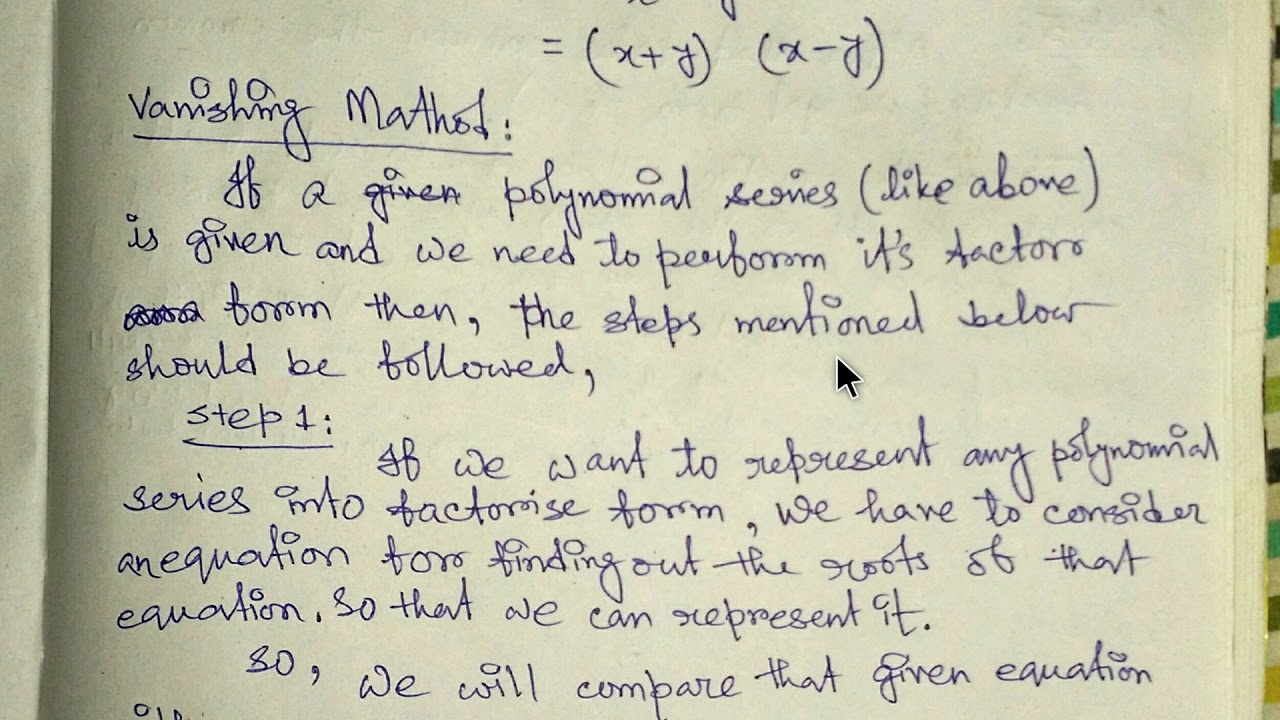 = (x+y) (x-y)
Vanishing Mathod:
If a given polynomial series (like above)
is given and we need to perform it's factor
form then, the steps mentioned below
should be followed,
Step 1:
If we want to represent any polynomial
series into factorise form, we have to consider
an equation for finding out the roots of that
equation. So that we can represent it.
So, we will compare that given equation